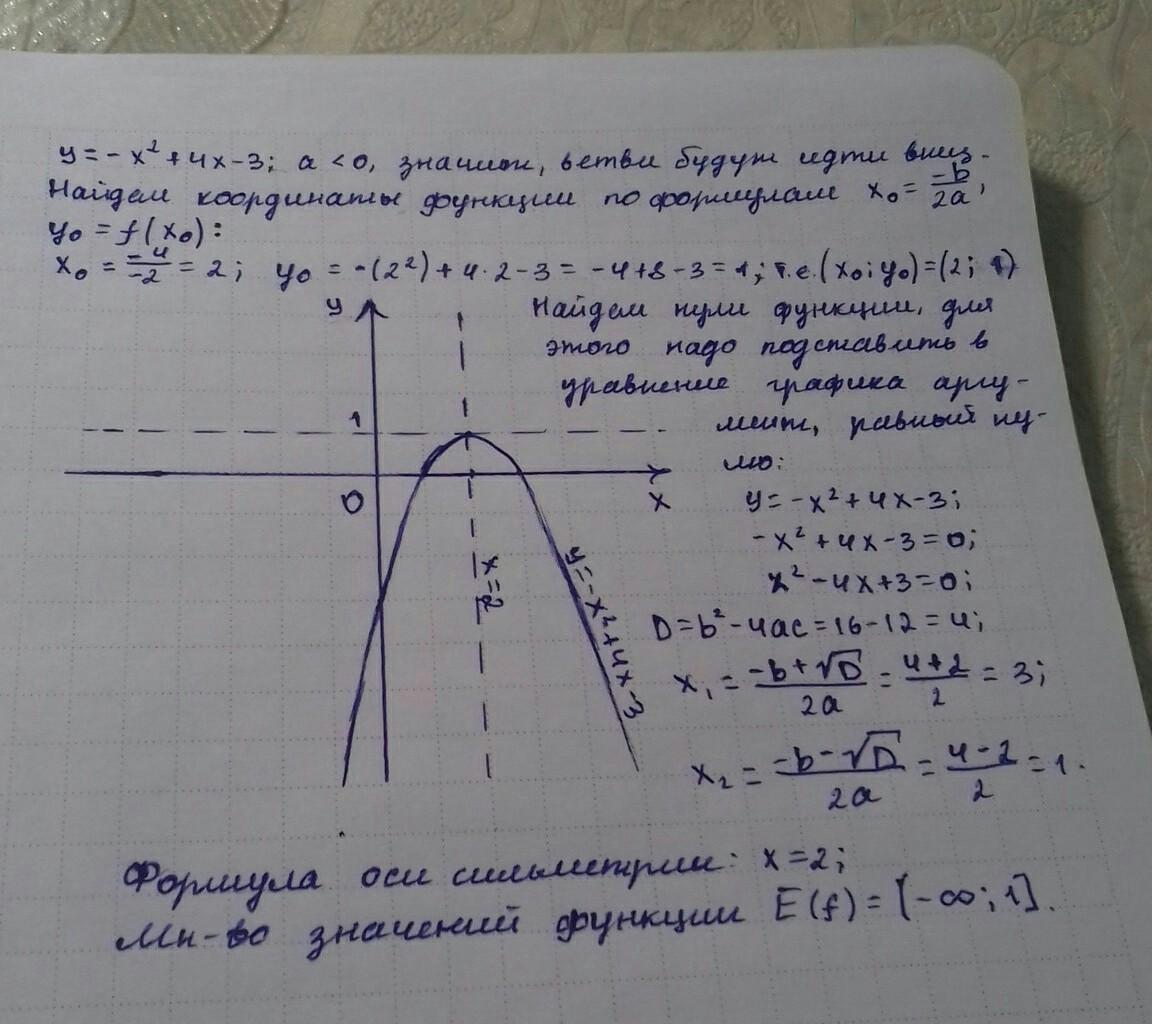 y = - x² + 4x - 3; a < 0, значит, ветви будут идти вниз.
Найдем координаты функции по формулам x₀ = -b/2a,
y₀ = f(x₀):
x₀ = -4/-2 = 2; y₀ = -(2²) + 4·2 - 3 = -4+8-3 = 1; т.е. (x₀; y₀) = (2; 1)
y
Найдем нули функции, для
этого надо подставить в
уравнение графика аргу-
1
мент, равный ну-
лю:
0
x
y = -x² + 4x - 3;
-x² + 4x - 3 = 0;
x² - 4x + 3 = 0;
x = 2
y = -x² + 4x - 3
D = b² - 4ac = 16 - 12 = 4;
x₁ = (-b + √D)/2a = (4+2)/2 = 3;
x₂ = (-b - √D)/2a = (4-2)/2 = 1.
Формула оси симметрии: x = 2;
Мн-во значений функции E(f) = [-∞; 1].